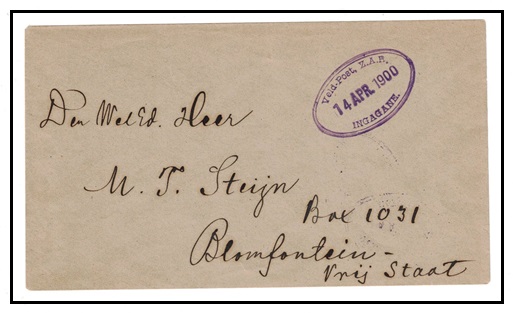 Veld-Post, Z.A.R.
14 APR. 1900
INGAGANE.
Den WelEd. Heer
M. T. Steijn
Box 1031
Blomfontein -
Vrij Staat